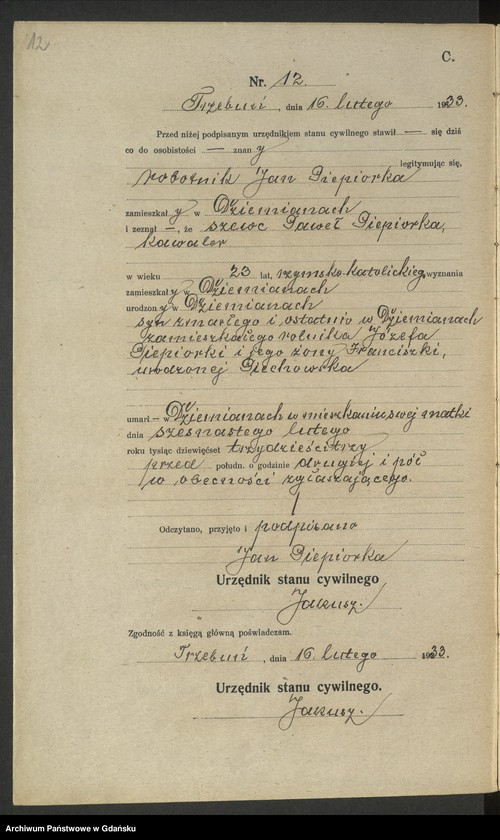 12
C.
Nr. 12.
Trzebuń, dnia 16. lutego 1933.
Przed niżej podpisanym urzędnikiem stanu cywilnego stawił — się dziś
co do osobistości — znany
legitymując się,
robotnik Jan Piepiorka
zamieszkały w Dziemianach
i zeznał —, że szewc Paweł Piepiorka,
kawaler
w wieku 23 lat, rzymsko-katolickieg. wyznania
zamieszkały w Dziemianach
urodzony w Dziemianach
syn zmarłego i ostatnio w Dziemianach
zamieszkałego rolnika Józefa
Piepiorki i jego żony Franciszki,
urodzonej Piechowska
umarł — w Dziemianach w mieszkaniu swej matki
dnia szesnastego lutego
roku tysiąc dziewięćset trzydzieścitrzy
przed połudn. o godzinie drugiej i pół
w obecności zgłaszającego.
Odczytano, przyjęto i podpisano
Jan Piepiorka
Urzędnik stanu cywilnego
Jakusz.
Zgodność z księgą główną poświadczam.
Trzebuń, dnia 16. lutego 1933.
Urzędnik stanu cywilnego.
Jakusz.
Archiwum Państwowe w Gdańsku